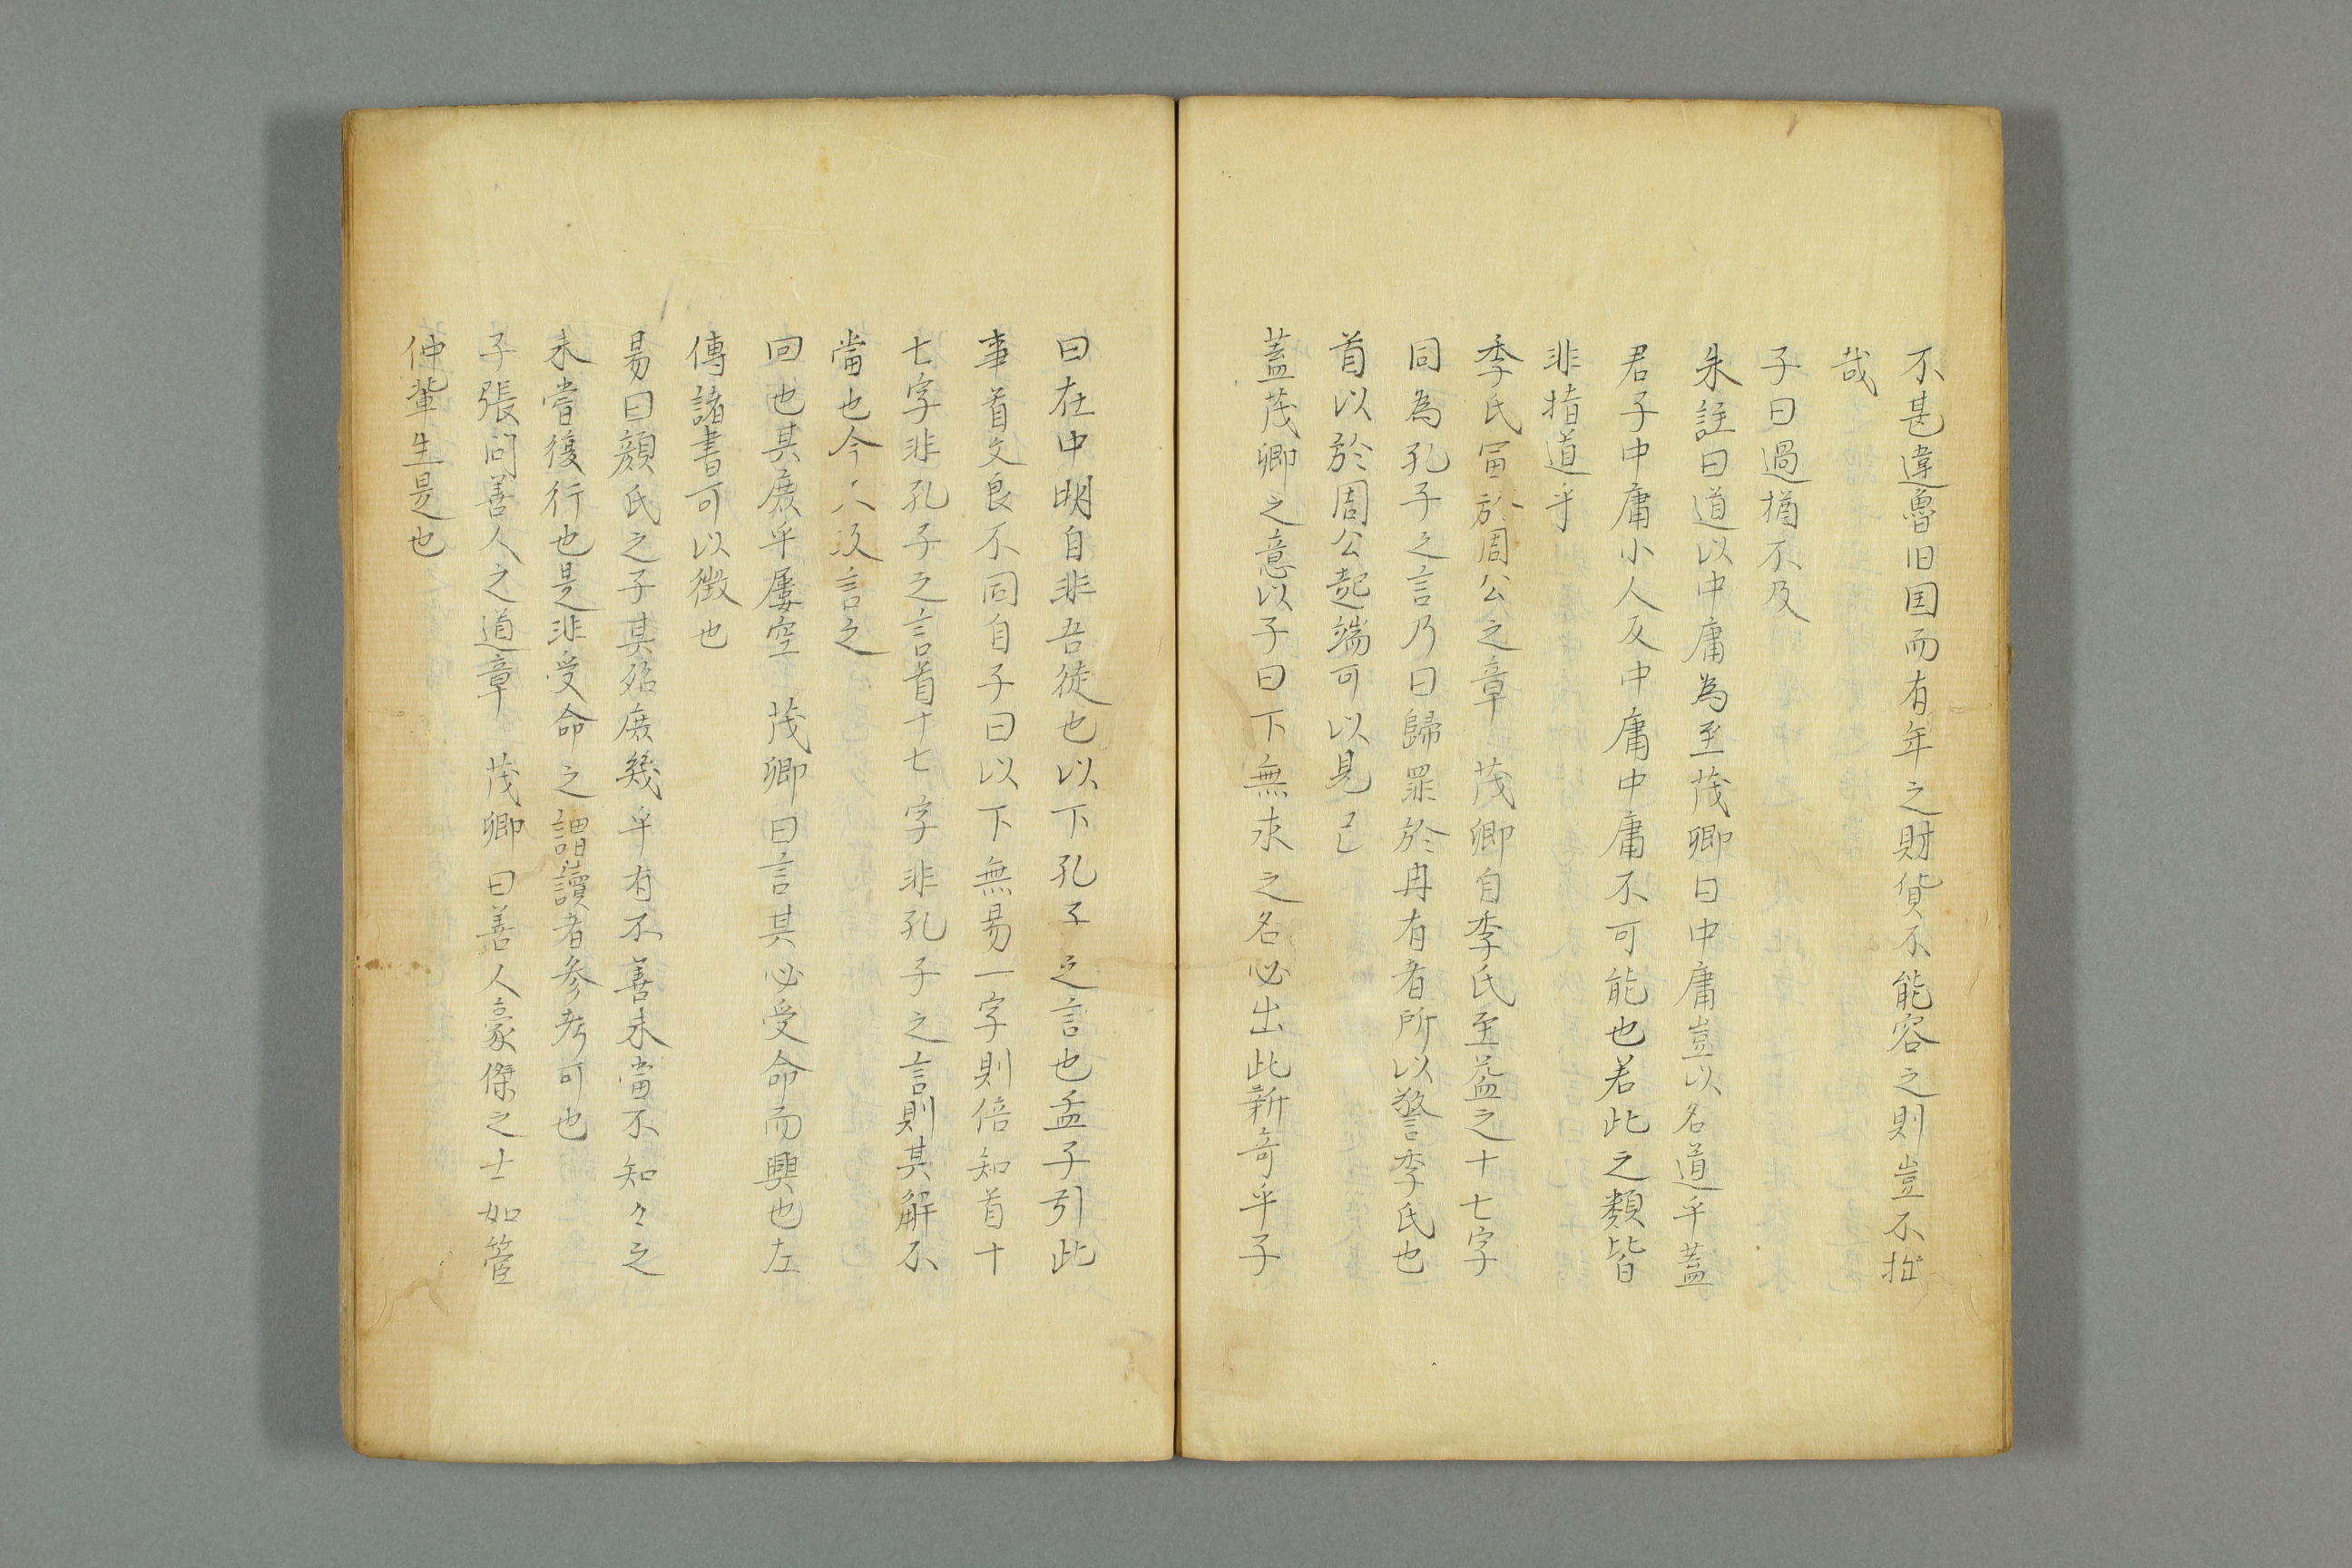 不甚違魯旧囯而有年之財貨不能容之則豈不拙
哉
子曰過猶不及
朱註曰道以中庸為至茂卿曰中庸豈以名道乎蓋
君子中庸小人反中庸中庸不可能也若此之類皆
非指道乎
季氏冨於周公之章　茂卿自季氏至益之十七字
同為孔子之言乃曰歸罪於冉有者所以警李氏也
首以於周公起端可以見已
蓋茂卿之意以子曰下無求之名必出此新奇乎子
曰在中明自非吾徒也以下孔子之言也孟子引此
事首文良不同自子曰以下無易一字則倍知首十
七字非孔子之言首十七字非孔子之言則其解不
當也今人次言之
回也其庶乎屢空　茂卿曰言其必受命而興也左
傳諸書可以徴也
易曰顔氏之子其殆庶幾乎有不善未當不知々之
未嘗復行也是非受命之謂讀者参考可也
子張問善人之道章　茂卿曰善人豪傑之士如管
仲輩生是也